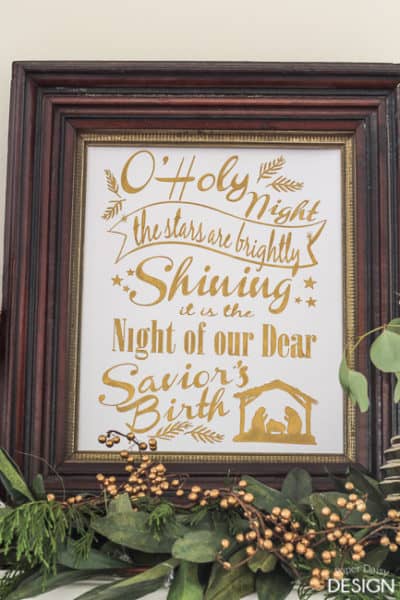 O'Holy
Night
the stars are brightly
Shining
it is the
Night of our Dear
Savior's
Birth
paper Daisy
DESIGN